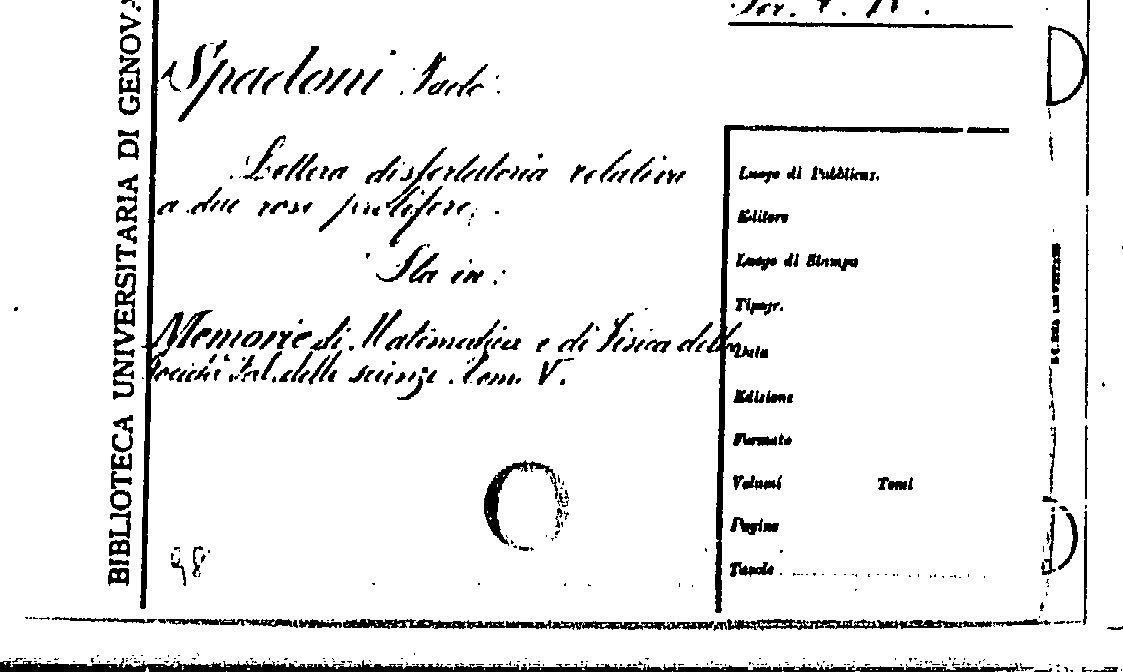 BIBLIOTECA UNIVERSITARIA DI GENOVA
Spadoni Paolo.
Lettera dissertatoria relativa
a due rose prolifere.
Sta in:
Memorie di Matematica e di Fisica della
Società Ital. delle scienze. Tom. V.
98
Luogo di Pubblicaz.
Editore
Luogo di Stampa
Tipogr.
Data
Edizione
Formato
Volumi Tomi
Pagine
Tavole